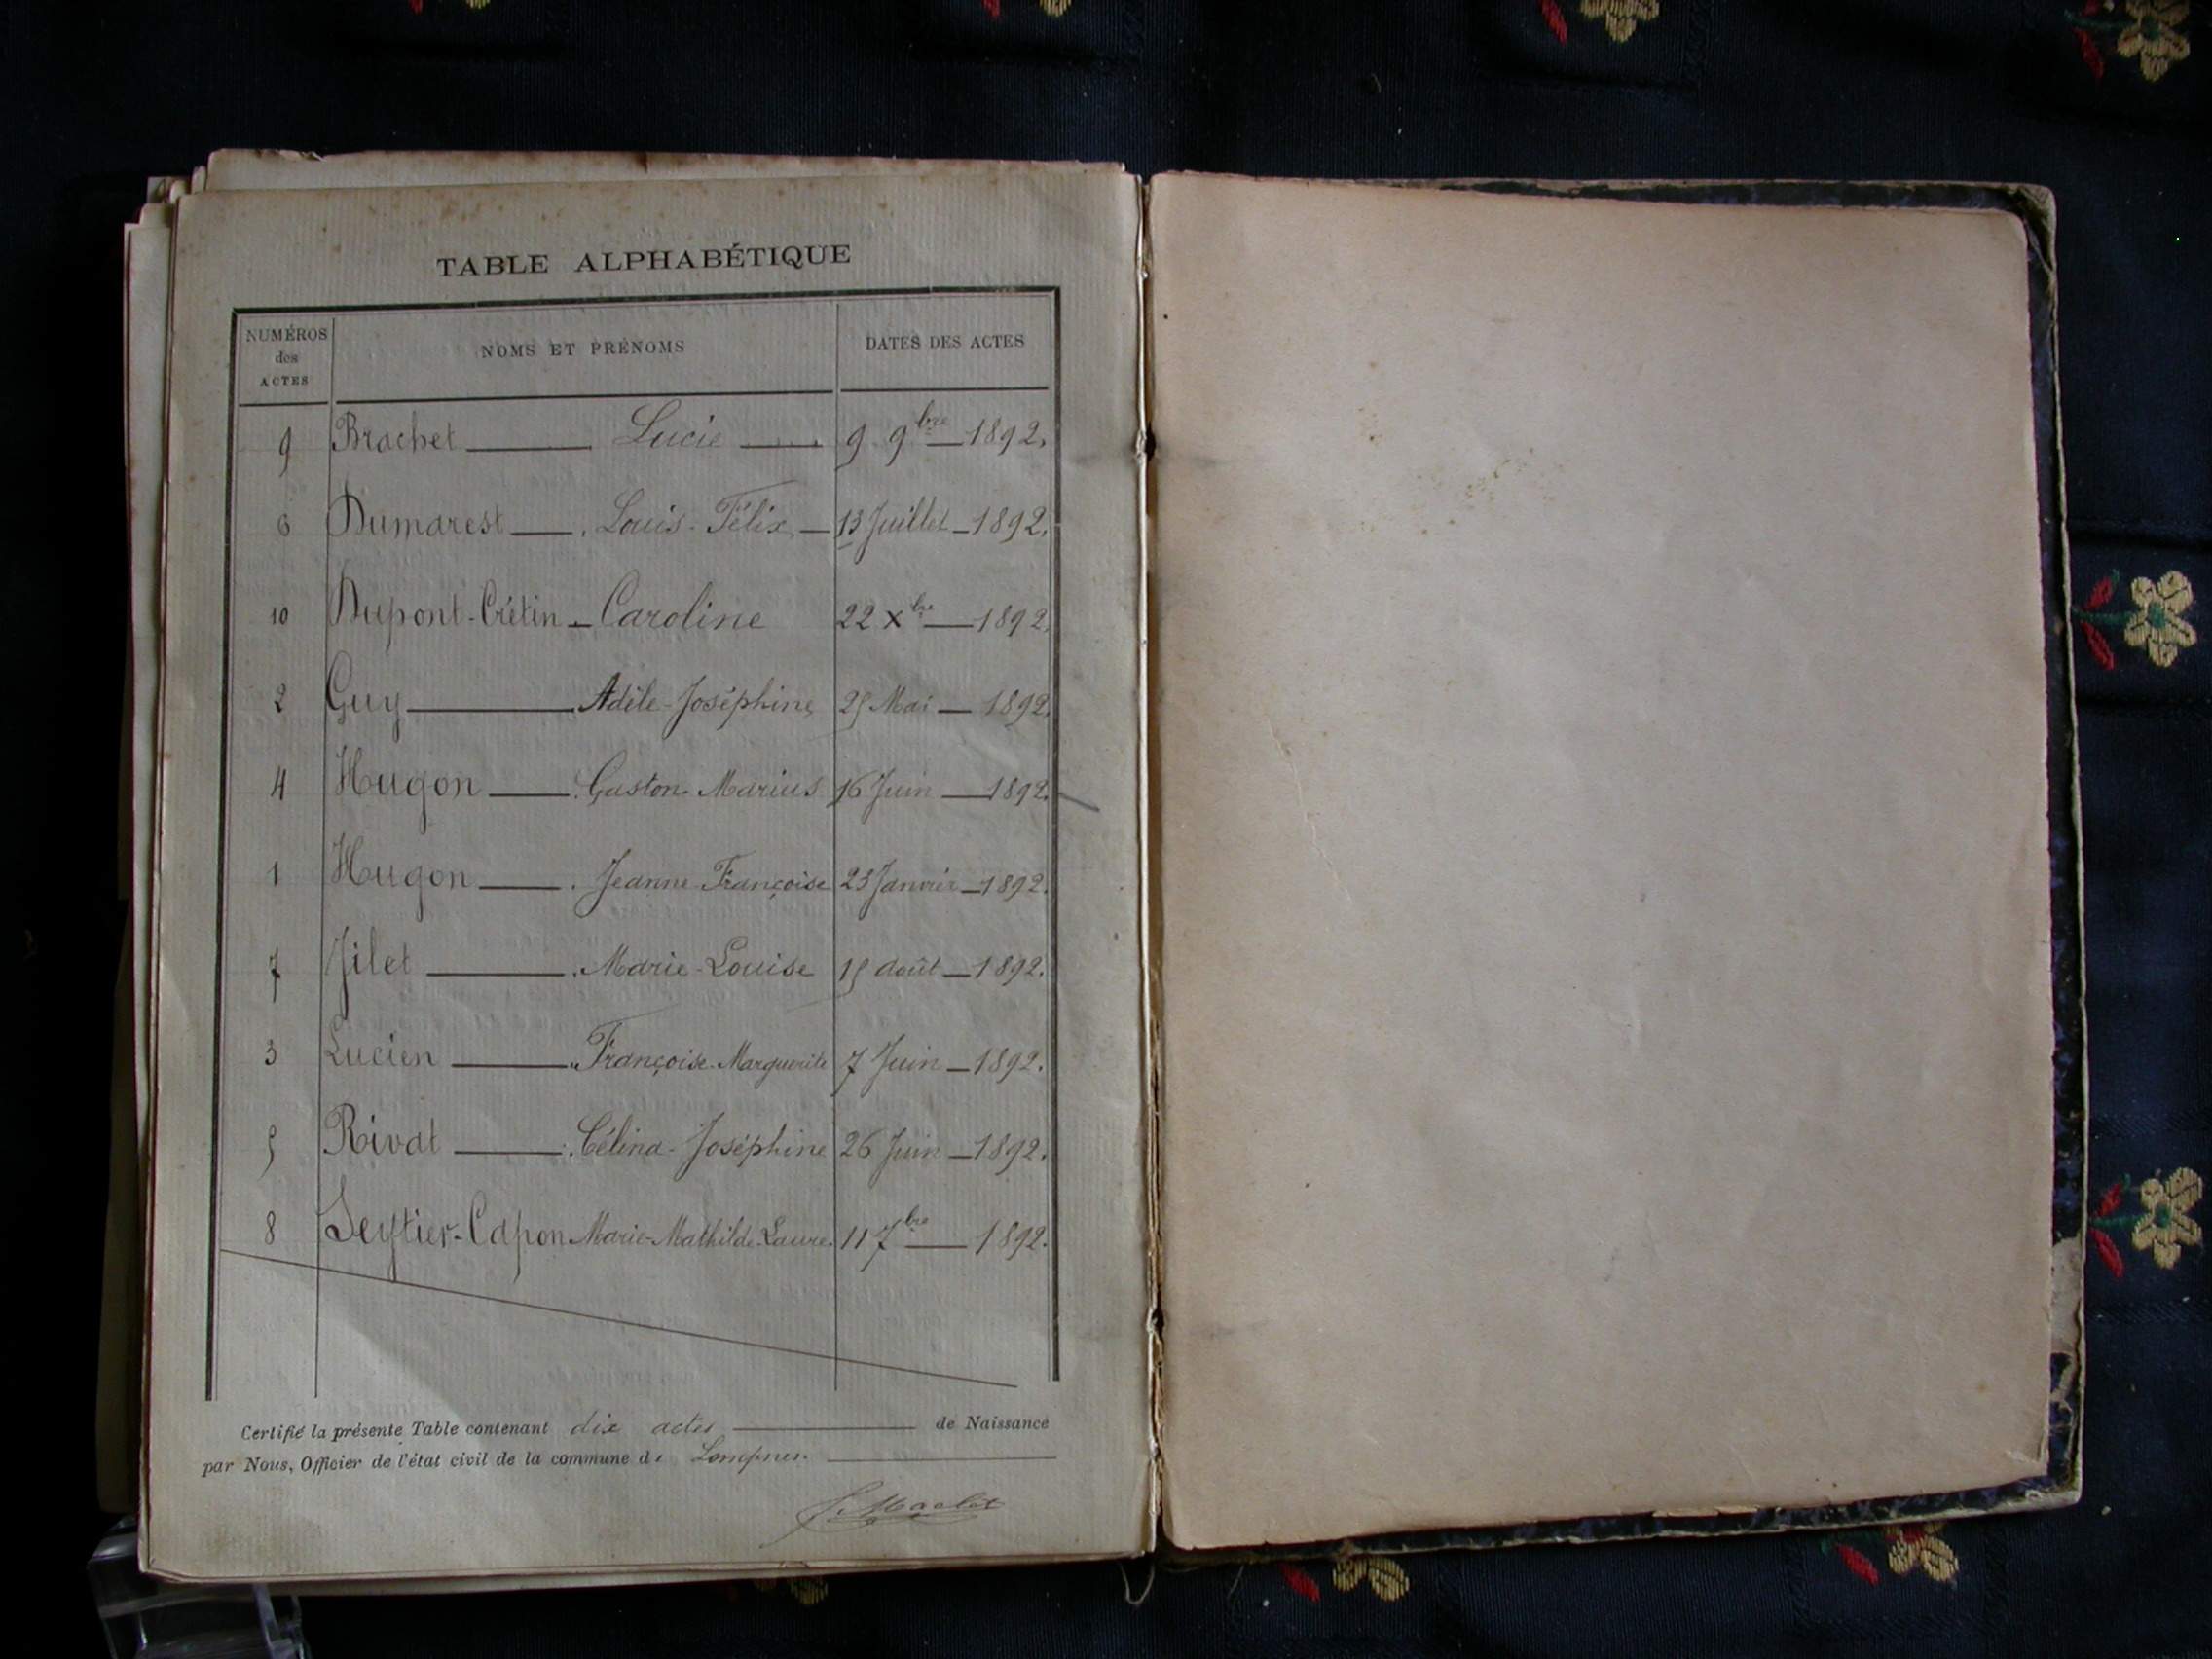 TABLE ALPHABÉTIQUE
NUMÉROS des ACTES NOMS ET PRÉNOMS DATES DES ACTES
9 Brachet — Lucie — 9 9bre — 1892.
6 Dumarest — Louis-Félix — 13 Juillet — 1892.
10 Dupont-Crétin — Caroline 22 Xbre — 1892.
2 Guy — Adèle-Joséphine 25 Mai — 1892.
4 Hugon — Gaston-Marius 16 Juin — 1892.
1 Hugon — Jeanne-Françoise 23 Janvier — 1892.
7 Jilet — Marie-Louise 15 août — 1892.
3 Lucien — Françoise-Marguerite 7 Juin — 1892.
5 Rivat — Célina-Joséphine 26 Juin — 1892.
8 Seytier-Capon Marie-Mathilde-Laure. 11 7bre — 1892.
Certifié la présente Table contenant dix actes — de Naissance
par Nous, Officier de l'état civil de la commune de Lompnes.